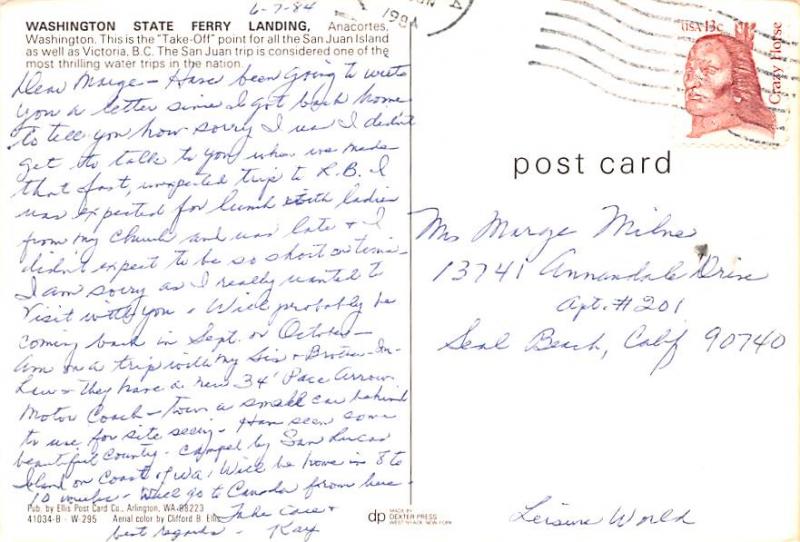 6-7-84
WASHINGTON STATE FERRY LANDING, Anacortes,
Washington. This is the "Take-Off" point for all the San Juan Island
as well as Victoria, B.C. The San Juan trip is considered one of the
most thrilling water trips in the nation.
Dear Marge - Have been going to write
you a letter since I got back home
to tell you how sorry I was I didn't
get to talk to you when we made
that fast, unexpected trip to L.B. I
was expected for lunch with ladies
from my Church and was late + I
didn't expect to be so short on time.
I am sorry as I really wanted to
visit with you. Will probably be
coming back in Sept. or October -
Am on a trip with my Sis + Brother-In-
Law - They have a new 34' Pace Arrow
Motor Coach - Tow a small car behind
to use for site seeing - Have seen some
beautiful country - Camped by San
Island on Coast of Wa. Will be home in 8 to
10 weeks - Will go to Canada from here -
Take Care +
best regards - Kay
Pub. by Ellis Post Card Co., Arlington, WA-98223
41034-B - W-295 Aerial color by Clifford B. Ellis
dp MADE BY
DEXTER PRESS
WEST NYACK, NEW YORK
1984
USA 13c
Crazy Horse
post card
Mrs Marge Milne
13741 Annandale Drive
Apt. #201
Seal Beach, Calif 90740
Leisure World